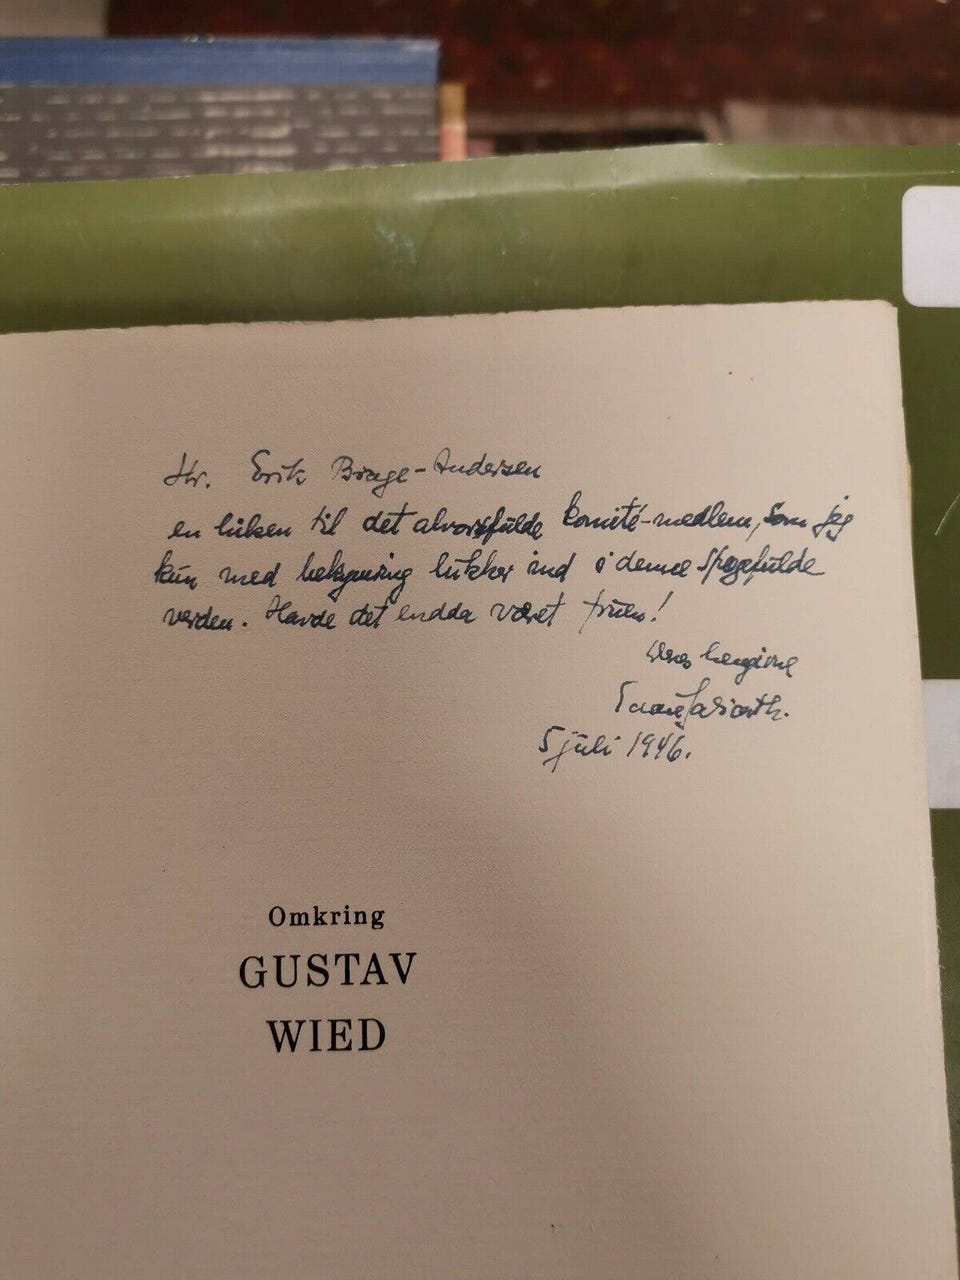 Hr. Erik Brage-Andersen
en hilsen til det alvorsfulde komité-medlem, som jeg
kun med bekymring lukker ind i denne spøgefulde
verden. Havde det endda været fruen!
Deres hengivne
5 juli 1946.
Omkring
GUSTAV
WIED